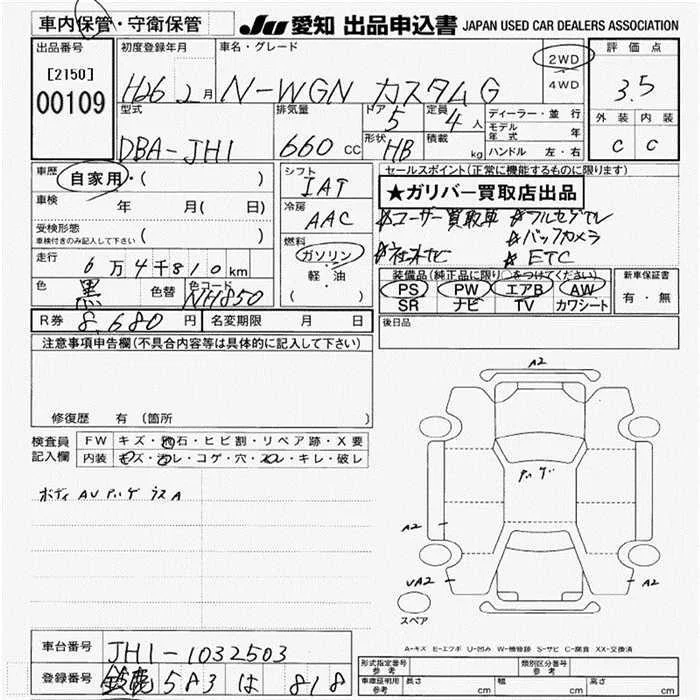 車内保管・守衛保管 JU 愛知 出品申込書 JAPAN USED CAR DEALERS ASSOCIATION
出品番号 初度登録年月 車名・グレード 2WD 評価点
[2150] H26 2月 N-WGN カスタム G 4WD 3.5
00109 型式 排気量 ドア 5 定員 4人 ディーラー・並行 外装 内装
DBA-JH1 660 CC 形状 HB 積載 kg モデル年式 年 C C
ハンドル 左・右
車歴 自家用・( ) シフト IAT セールスポイント(正常に機能するものに限ります)
★ガリバー買取店出品
車検 年 月( 日) 冷房 AAC ユーザー買取車 フルセグTV
受検形態 ( ) バックカメラ
車検付きのみ記入して下さい 燃料 社外ナビ ETC
走行 6万4千810km ガソリン 装備品(純正品に限り○をつけてください) 新車保証書
色 黒 色替 色コード NH850 軽・油 PS PW エアB AW 有・無
( ) SR ナビ TV カワシート
R券 8,680円 名変期限 月 日 後日品
注意事項申告欄(不具合内容等は具体的に記入して下さい)
修復歴 有 (箇所 )
検査員 FW キズ・飛石・ヒビ割・リペア跡・X要
記入欄 内装 キズ・汚レ・コゲ・穴・スレ・キレ・破レ
ボディ AU
A2
A2
UA2
A2
スペア
A-キズ E-エクボ U-凹み W-補修跡 S-サビ C-腐食 XX-交換済
車台番号 JH1-1032503
登録番号 鈴鹿 583 は 818
形式指定番号 参考 類別区分番号 参考
車庫証明用 参考 長さ cm 幅 cm 高さ cm